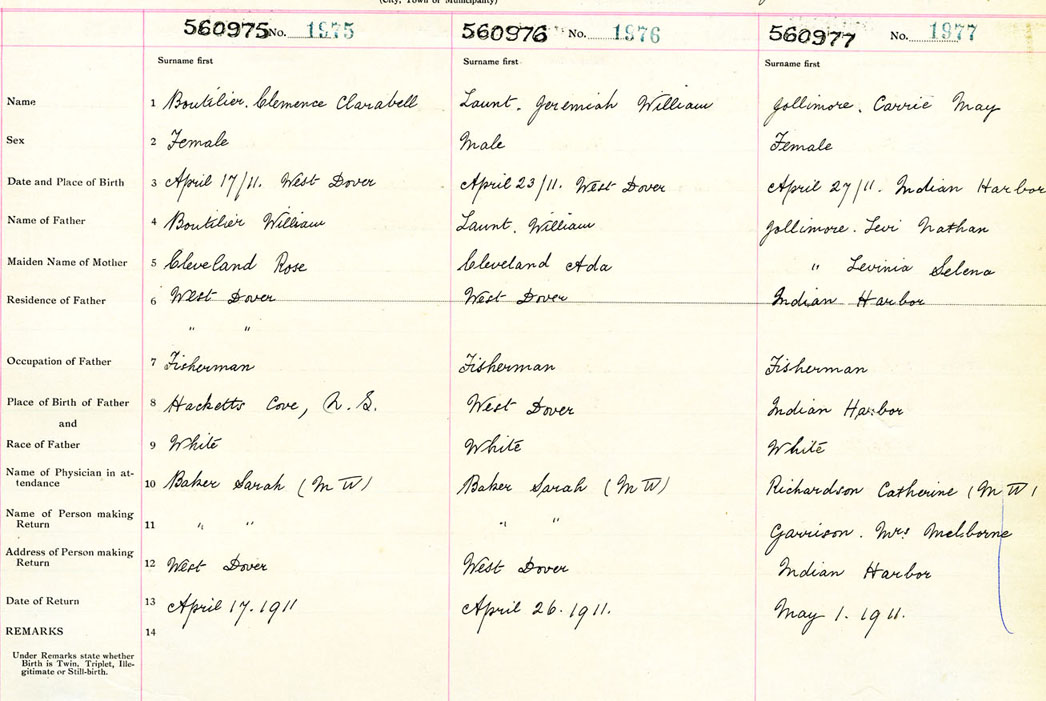 (City, Town or Municipality)
560975 No. 1975 560976 No. 1976 560977 No. 1977
Surname first Surname first Surname first
Name 1 Boutilier. Clemence Clarabell Launt. Jeremiah William Jollimore. Carrie May
Sex 2 Female Male Female
Date and Place of Birth 3 April 17/11. West Dover April 23/11. West Dover April 27/11. Indian Harbor
Name of Father 4 Boutilier William Launt. William Jollimore. Levi Nathan
Maiden Name of Mother 5 Cleveland Rose Cleveland Ada " Levinia Selena
Residence of Father 6 West Dover West Dover Indian Harbor
" "
Occupation of Father 7 Fisherman Fisherman Fisherman
Place of Birth of Father 8 Hacketts Cove, N.S. West Dover Indian Harbor
and
Race of Father 9 White White White
Name of Physician in at-
tendance 10 Baker Sarah (M W) Baker Sarah (M W) Richardson Catherine (M W)
Name of Person making
Return 11 " " " " Garrison. Mrs Melborne
Address of Person making
Return 12 West Dover West Dover Indian Harbor
Date of Return 13 April 17. 1911 April 26. 1911. May 1. 1911.
REMARKS 14
Under Remarks state whether
Birth is Twin, Triplet, Ille-
gitimate or Still-birth.